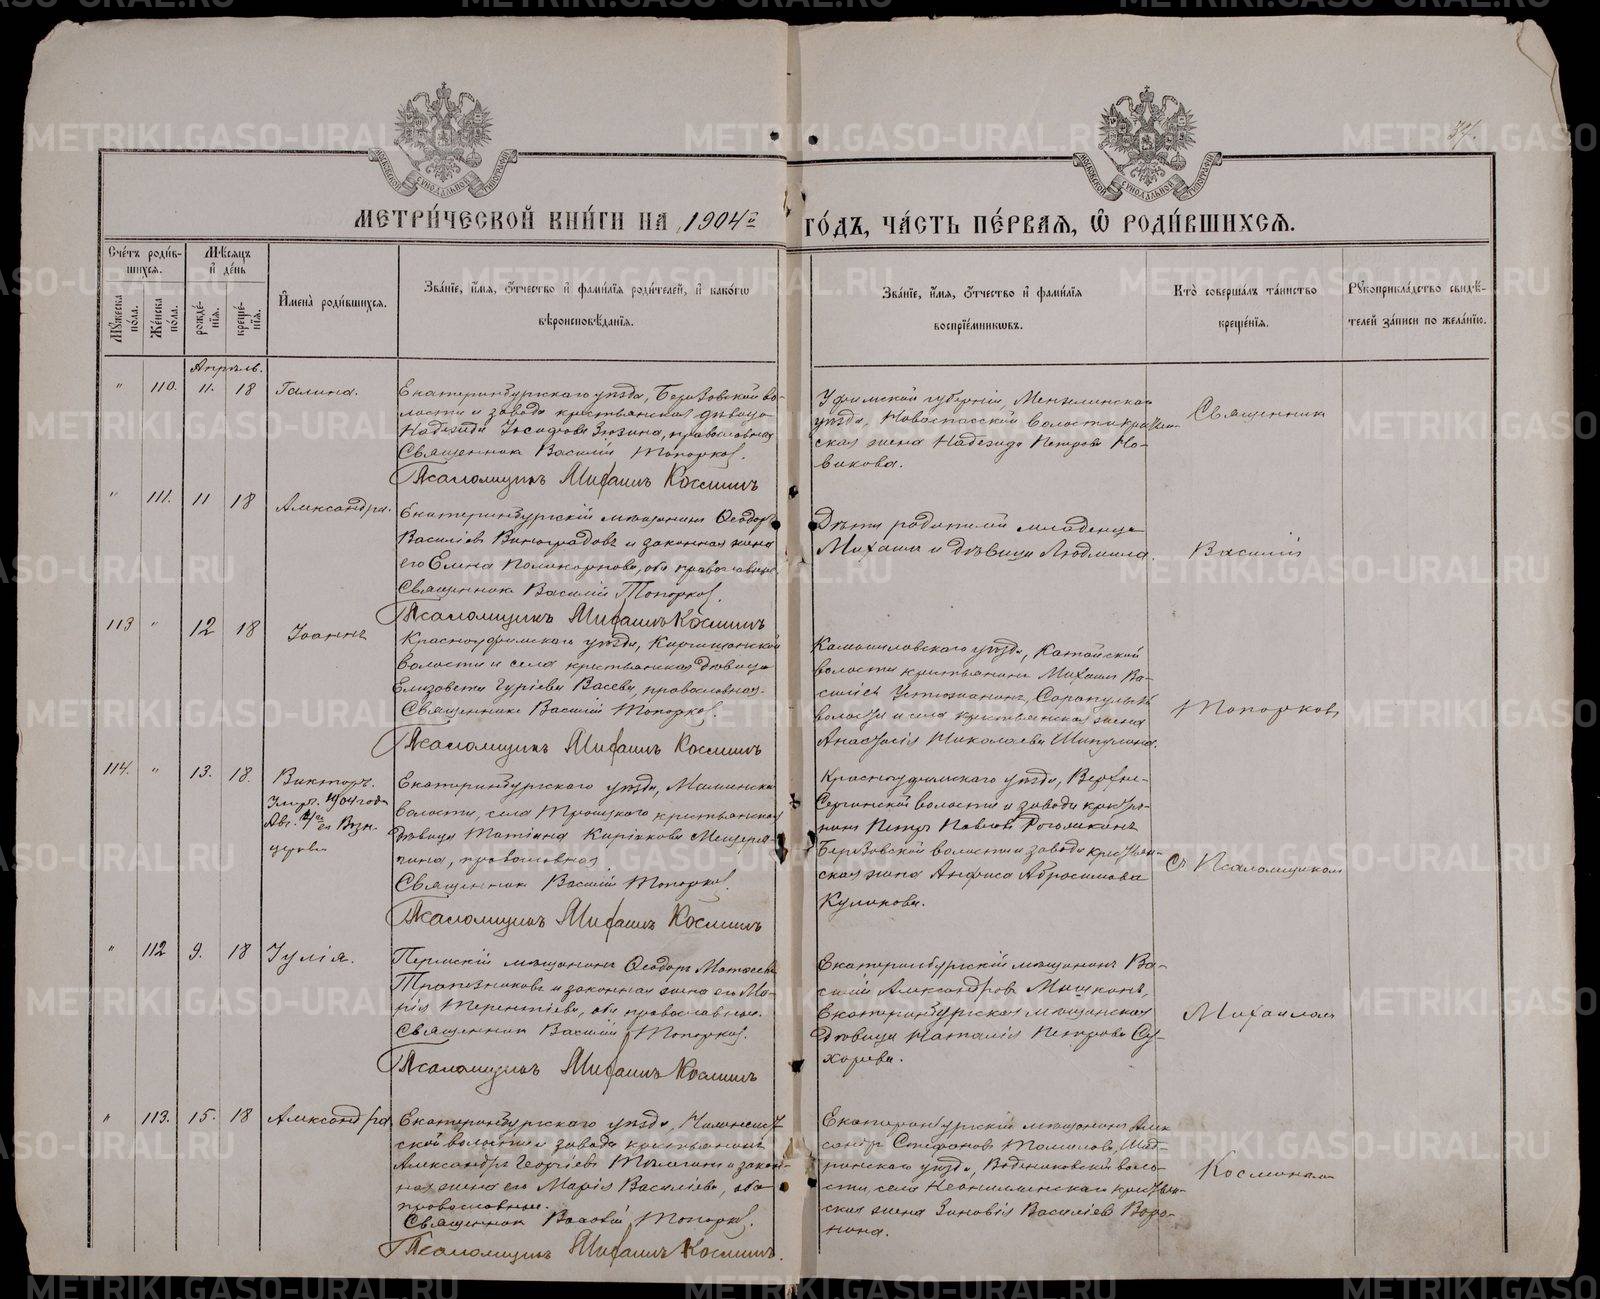 МЕТРИ́ЧЕСКОЙ КНИ́ГИ НА 1904й ГО́ДЪ, ЧА́СТЬ ПЕ́РВАЯ, Ѽ РОДИ́ВШИХСѦ.
Сче́тъ роди́в-
шихся.
Мѣ́сяцъ
и҆ де́нь
Мꙋ́жеска по́ла.
Же́нска по́ла.
рожде́-
нїя.
креще́-
нїя.
И҆мена̀ роди́вшихся.
Зва́нїе, и҆́мя, ѻ҆́тчество и҆ фами́лїя роди́телей, и҆ како́гѡ
вѣроисповѣ́данїя.
Зва́нїе, и҆́мя, ѻ҆́тчество и҆ фами́лїя
воспрїе́мникѡвъ.
Кто̀ соверша́лъ та́инство
креще́нїя.
Рꙋкоприкла́дство свидѣ́-
телей за́писи по жела́нїю.
Апрѣль.
" 110. 11. 18 Галина.
Екатеринбургскаго уѣзда, Березовской во-
лости и завода крестьянская дѣвица
Надежда Іосифова Зюзина, православная
Священникъ Василій Топорковъ.
Псаломщикъ Михаилъ Косминъ
Уфимской губерніи, Мензелинскаго
уѣзда, Новоспасской волости крестьян-
ская жена Надежда Петрова Но-
викова.
Священникъ
" 111. 11 18 Александра.
Екатеринбургскій мѣщанинъ Ѳеодоръ
Василіевъ Виноградовъ и законная жена
его Елена Поликарпова, оба православные.
Священникъ Василій Топорковъ.
Псаломщикъ Михаилъ Косминъ
Дѣти родителей младенца
Михаилъ и дѣвица Людмила.
Василій
113 " 12 18 Іоаннъ
Красноуфимскаго уѣзда, Киргишанской
волости и села крестьянская дѣвица
Елизавета Гуріева Васева, православная.
Священникъ Василій Топорковъ.
Псаломщикъ Михаилъ Косминъ
Камышловскаго уѣзда, Катайской
волости крестьянинъ Михаилъ Ва-
силіевъ Устюжанинъ,
волости и села крестьянская жена
Анастасія Николаева
Топорковъ
114. " 13. 18. Викторъ.
Умеръ 1904 года
Авг.
церкви
Екатеринбургскаго уѣзда, Маминской
волости, села Троицкаго крестьянская
дѣвица Татіана Киріакова Мещеря-
гина, православная
Священникъ Василій Топорковъ.
Псаломщикъ Михаилъ Косминъ
Красноуфимскаго уѣзда, Верхне-
Сергинской волости и завода крестья-
нинъ Петръ Павловъ
Березовской волости и завода крестьян-
ская жена Анфиса Абросимова
Куликова.
съ Псаломщикомъ
" 112 9. 18 Іулія.
Пермскій мѣщанинъ Ѳеодоръ Матвеевъ
Трапезниковъ и законная жена его Ма-
рія Терентіева, оба православные.
Священникъ Василій Топорковъ.
Псаломщикъ Михаилъ Косминъ
Екатеринбургскій мѣщанинъ Ва-
силій Александровъ Мишкинъ,
Екатеринбургская мѣщанская
дѣвица Наталія Петрова Су-
хорева.
Михаиломъ
" 113. 15. 18 Александра
Екатеринбургскаго уѣзда,
ской волости и завода крестьянинъ
Александръ Георгіевъ и закон-
ная жена его Марія Василіева, оба
православные.
Священникъ Василій Топорковъ.
Псаломщикъ Михаилъ Косминъ.
Екатеринбургскій мѣщанинъ Алек-
сандръ Стефановъ Томиловъ, Шад-
ринскаго уѣзда, воло-
сти, села крестьян-
ская жена Зиновія Василіева Воро-
нина.
Косминымъ
METRIKI.GASO-URAL.RU